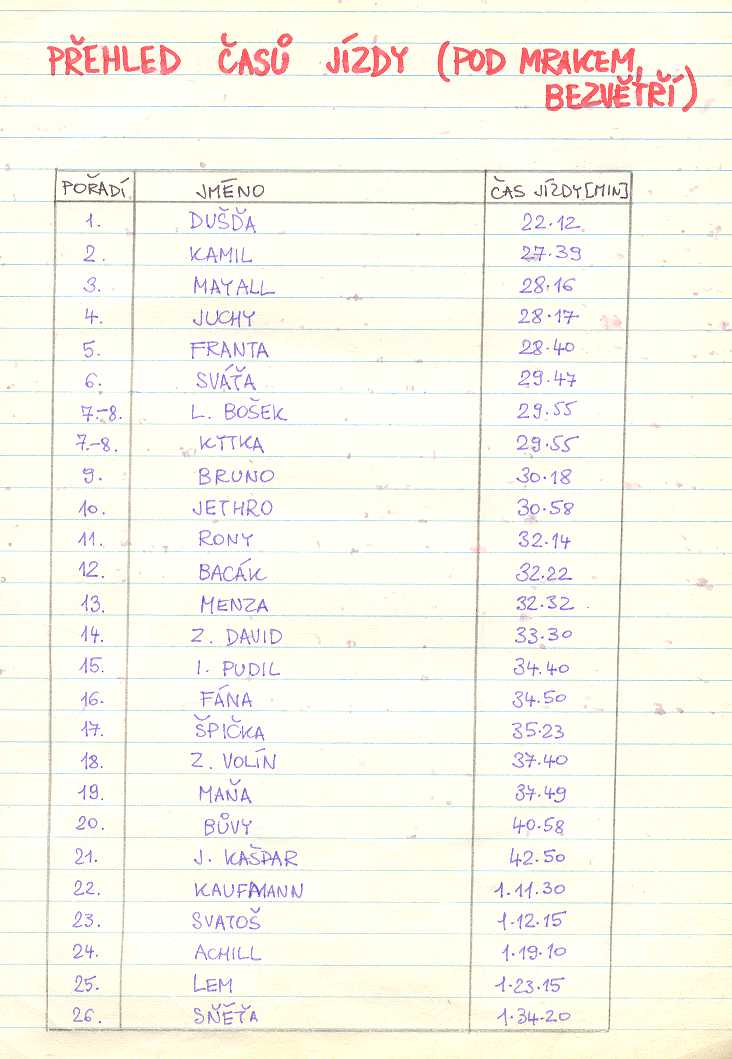 PŘEHLED ČASŮ JÍZDY (POD MRAKEM,
BEZVĚTŘÍ)
POŘADÍ JMÉNO ČAS JÍZDY [MIN]
1. DUŠĎA 22.12
2. KAMIL 27.39
3. MAYALL 28.16
4. JUCHY 28.17
5. FRANTA 28.40
6. SVÁŤA 29.47
7.-8. L. BOŠEK 29.55
7.-8. KYTKA 29.55
9. BRUNO 30.18
10. JETHRO 30.58
11. RONY 32.14
12. BACÁK 32.22
13. MENZA 32.32
14. Z. DAVID 33.30
15. I. PUDIL 34.40
16. FÁNA 34.50
17. ŠPIČKA 35.23
18. Z. VOLÍN 37.40
19. MAŇA 37.49
20. BŮVY 40.58
21. J. KAŠPAR 42.50
22. KAUFMANN 1.11.30
23. SVATOŠ 1.12.15
24. ACHILL 1.19.10
25. LEM 1.23.15
26. SŇĚŤA 1.34.20